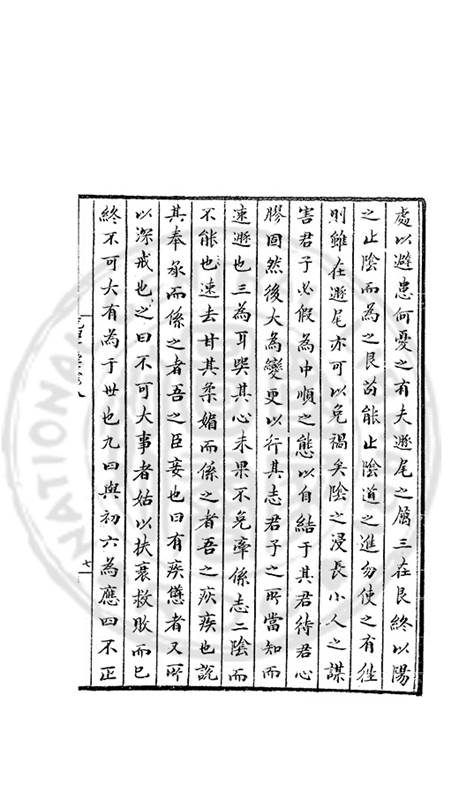 處以避患何憂之有夫遯尾之厲三在艮終以陽
之止陰而為之艮苟能止陰道之進勿使之有往
則雖在遯尾亦可以免禍矣陰之浸長小人之謀
害君子必假為中順之態以自結于其君待君心
膠固然後大為變更以行其志君子之所當知而
速遯也三為耳與其心未果不免牽係志二陰而
不能也速去甘其柔媚而係之者吾之疾疾也說
其奉承而係之者吾之臣妾也曰有疾憊者又所
以深戒也之曰不可大事者姑以扶衰救敗而已
終不可大有為于世也九四與初六為應四不正
七
NATIONAL